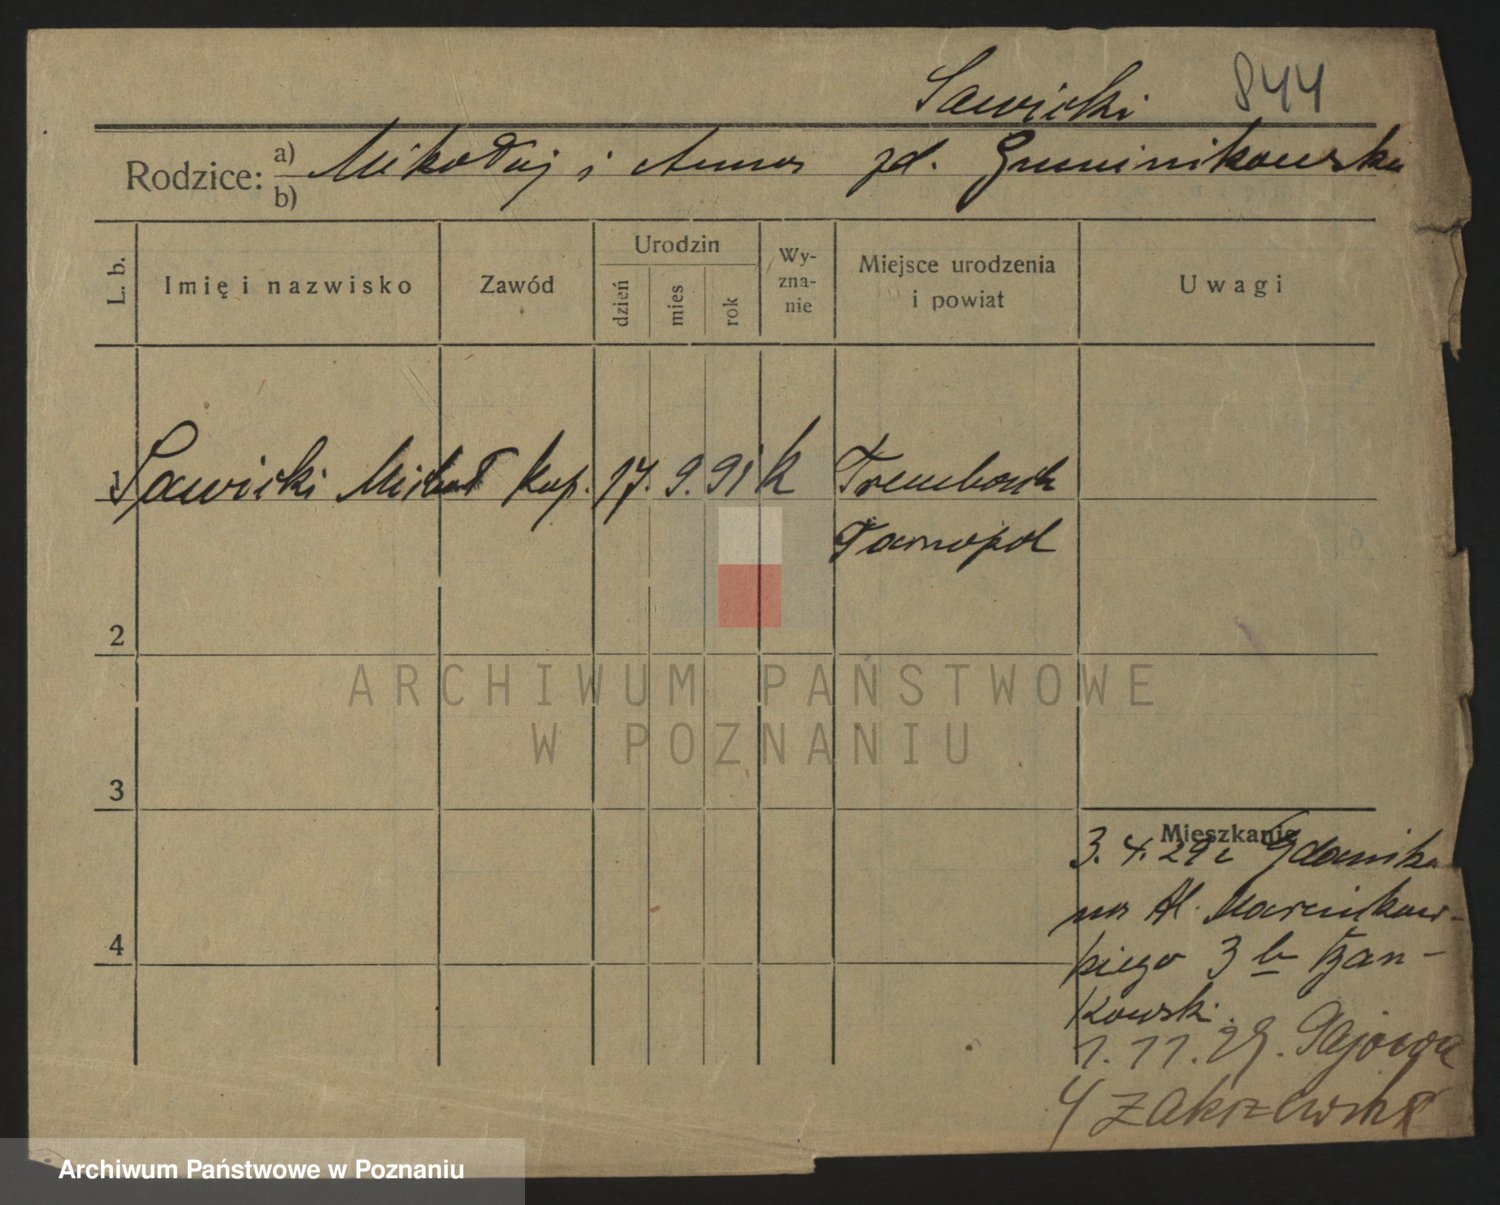 Sawicki 844
Rodzice: a) Mikołaj i Anna zd. Gmuinikowska
b)
L. b. Imię i nazwisko Zawód Urodzin dzień mies rok Wy-zna-nie Miejsce urodzenia i powiat Uwagi
1 Sawicki Michał kup. 17. 9. 91 k Trembowla
Tarnopol
2
3
Mieszkanie
3. 4. 29 z Gdańska
na Al. Marcinkow-
4
skiego 3 b
kowski.
1. 11. 29. Gajowa
4 Zakrzewski
ARCHIWUM PAŃSTWOWE
W POZNANIU
Archiwum Państwowe w Poznaniu